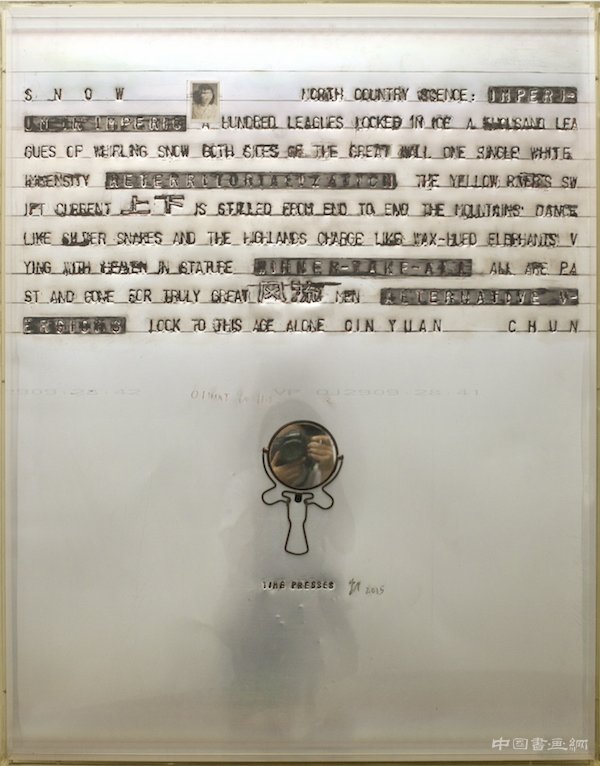 S N O W NORTH COUNTRY SCENCE: IMPERI-
UM IN IMPERIO A HUNDRED LEAGUES LOCKED IN ICE A THOUSAND LEA
GUES OF WHIRLING SNOW BOTH SITES OF THE GREAT WALL ONE SINGLE WHITE
IMMENSITY RETERRITORIALIZATION THE YELLOW RIVER'S SW
IFT CURRENT 上下 IS STILLED FROM END TO END THE MOUNTAINS DANCE
LIKE SILVER SNAKES AND THE HIGHLANDS CHARGE LIKE WAX-HUED ELEPHANTS V
YING WITH HEAVEN IN STATURE WINNER-TAKE-ALL ALL ARE PA
ST AND GONE FOR TRULY GREAT 风流 MEN ALTERNATIVE V-
ERSIONS LOOK TO THIS AGE ALONE QIN YUAN CHUN
2909:28:42 VP 012909:28:41
TIME PRESSES 2015
中国書画網